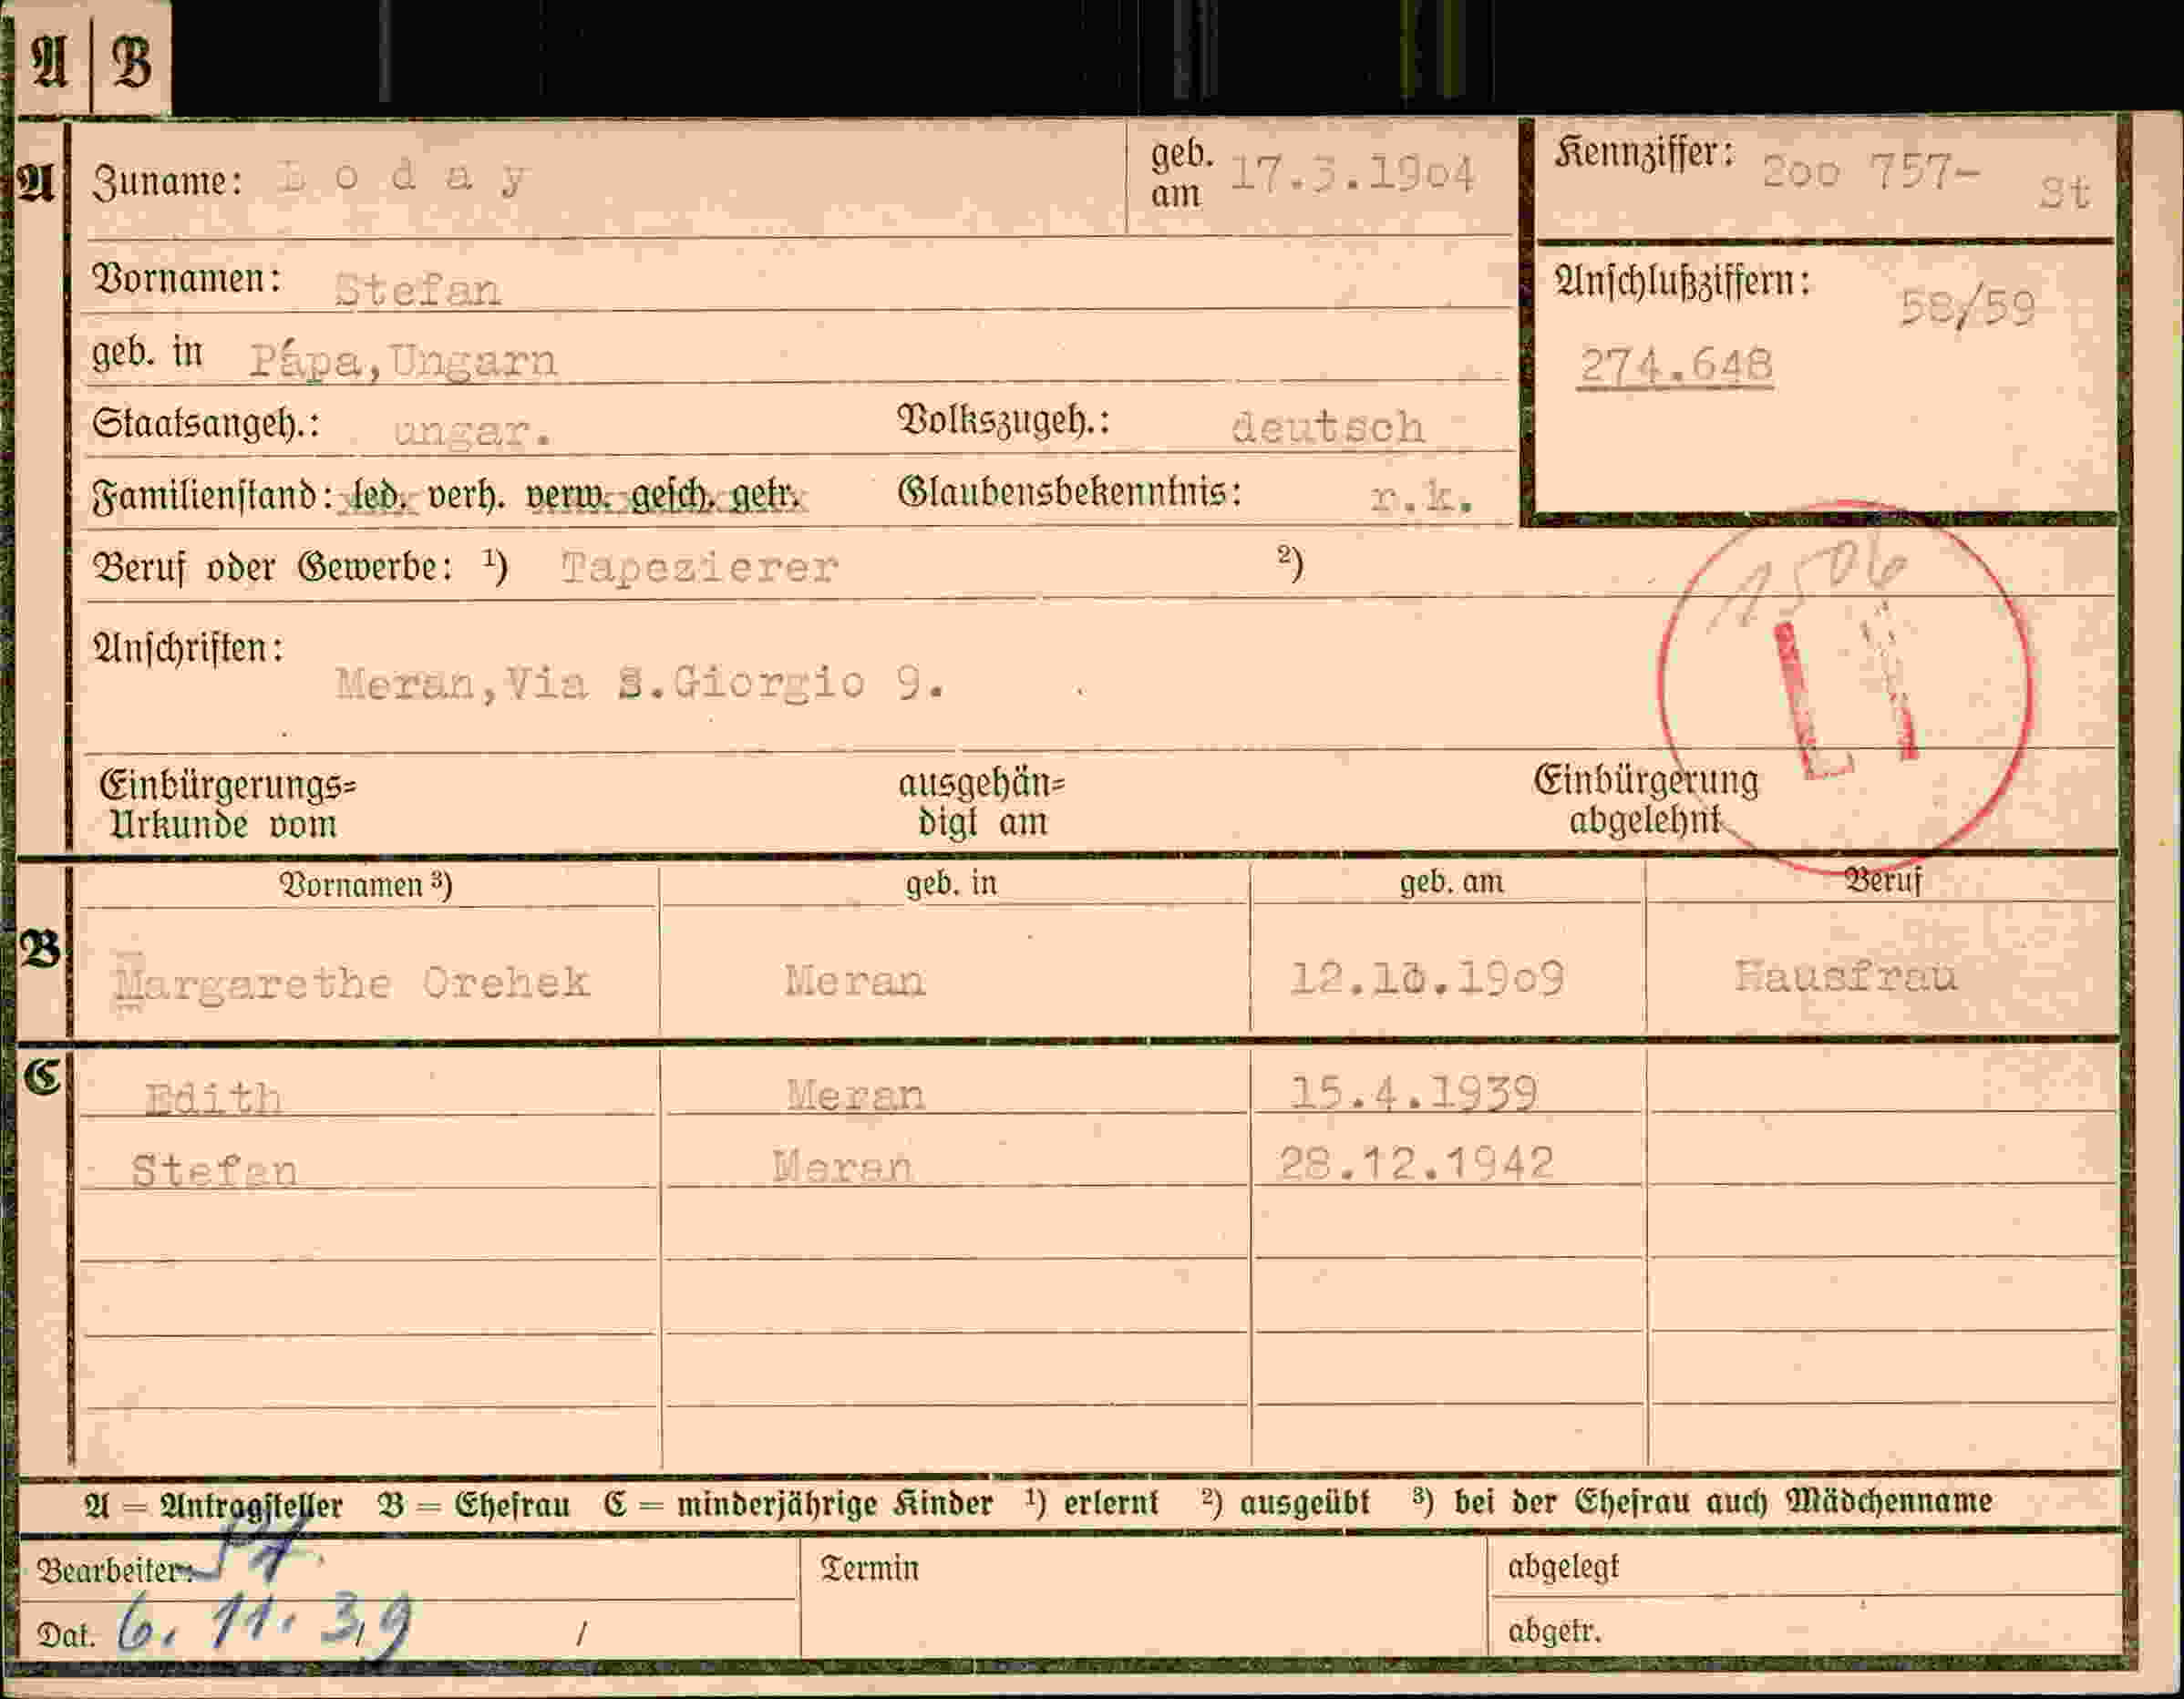 A | B
A Zuname: L o d a y geb. am 17.3.19o4 Kennziffer: 2oo 757- St
Vornamen: Stefan Anschlußziffern: 58/59
geb. in Pápa,Ungarn 274.648
Staatsangeh.: ungar. Volkszugeh.: deutsch
Familienstand: led. verh. verw. gesch. getr. Glaubensbekenntnis: r.k.
Beruf oder Gewerbe: ¹) Tapezierer ²)
1506
Anschriften:
Meran,Via S.Giorgio 9.
Einbürgerungs= ausgehän= Einbürgerung
Urkunde vom digt am abgelehnt
Vornamen ³) geb. in geb. am Beruf
B Margarethe Orehek Meran 12.10.19o9 Hausfrau
C Edith Meran 15.4.1939
Stefan Meran 28.12.1942
A = Antragsteller B = Ehefrau C = minderjährige Kinder ¹) erlernt ²) ausgeübt ³) bei der Ehefrau auch Mädchenname
Bearbeiter: Termin abgelegt
Dat. 6. 11. 39 / abgetr.